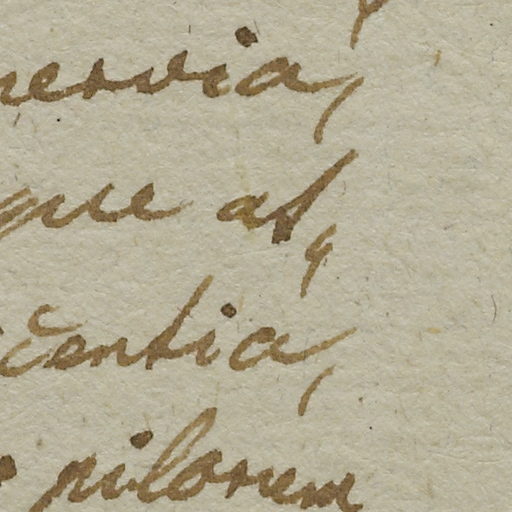 nervia,
que at,
centia,
pilorum